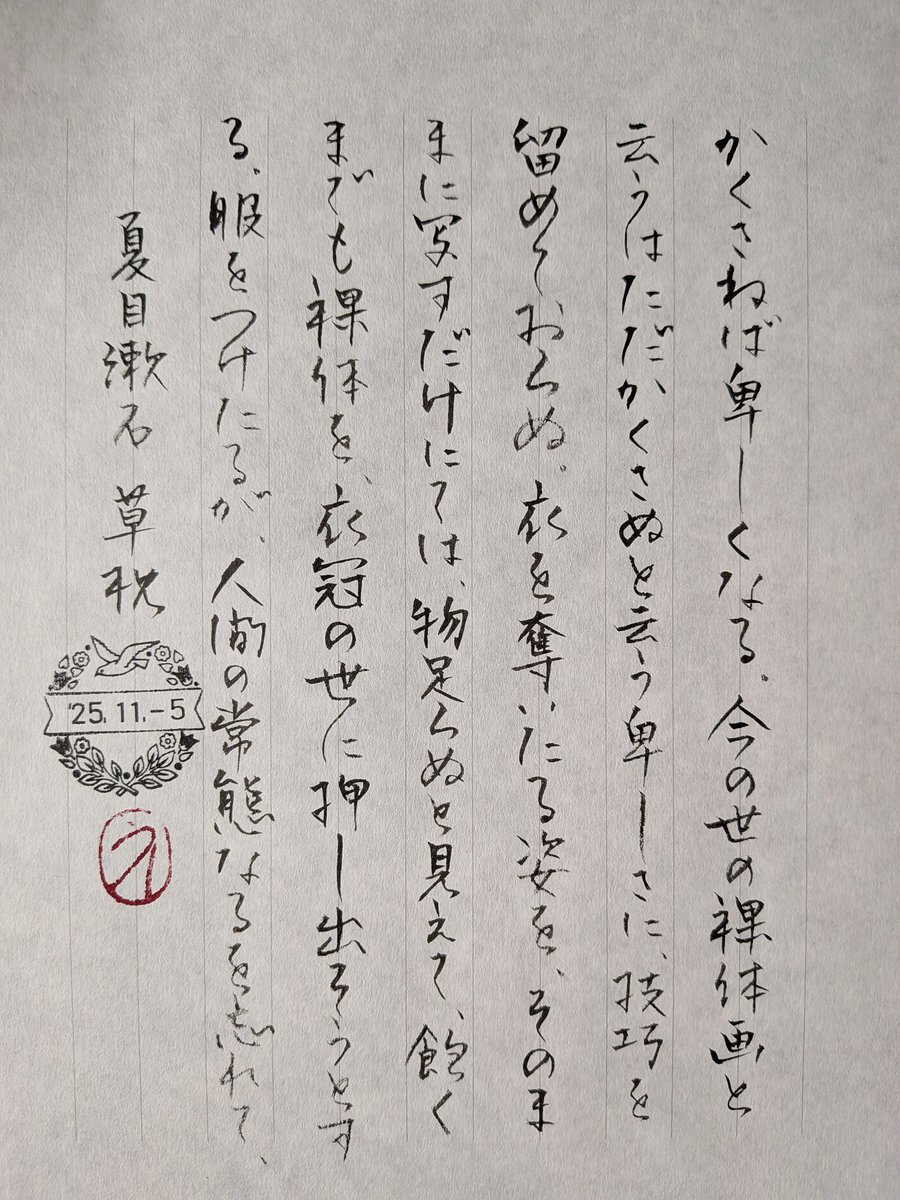 かくさねば卑しくなる。今の世の裸体画と
云うはただかくさぬと云う卑しさに、技巧を
留めておらぬ。衣を奪いたる姿を、そのま
まに写すだけにては、物足らぬと見えて、飽く
までも裸体を、衣冠の世に押し出そうとす
る。服をつけたるが、人間の常態なるを忘れて、
夏目漱石 草枕
'25.11.-5